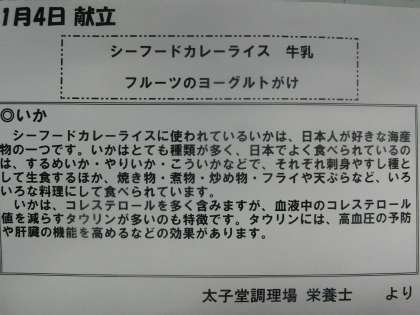 1月4日 献立
シーフードカレーライス 牛乳
フルーツのヨーグルトがけ
◎いか
シーフードカレーライスに使われているいかは、日本人が好きな海産
物の一つです。いかはとても種類が多く、日本でよく食べられているの
は、するめいか・やりいか・こういかなどで、それぞれ刺身やすし種と
して生食するほか、焼き物・煮物・炒め物・フライや天ぷらなど、いろ
いろな料理にして食べられています。
いかは、コレステロールを多く含みますが、血液中のコレステロール
値を減らすタウリンが多いのも特徴です。タウリンには、高血圧の予防
や肝臓の機能を高めるなどの効果があります。
太子堂調理場 栄養士 より